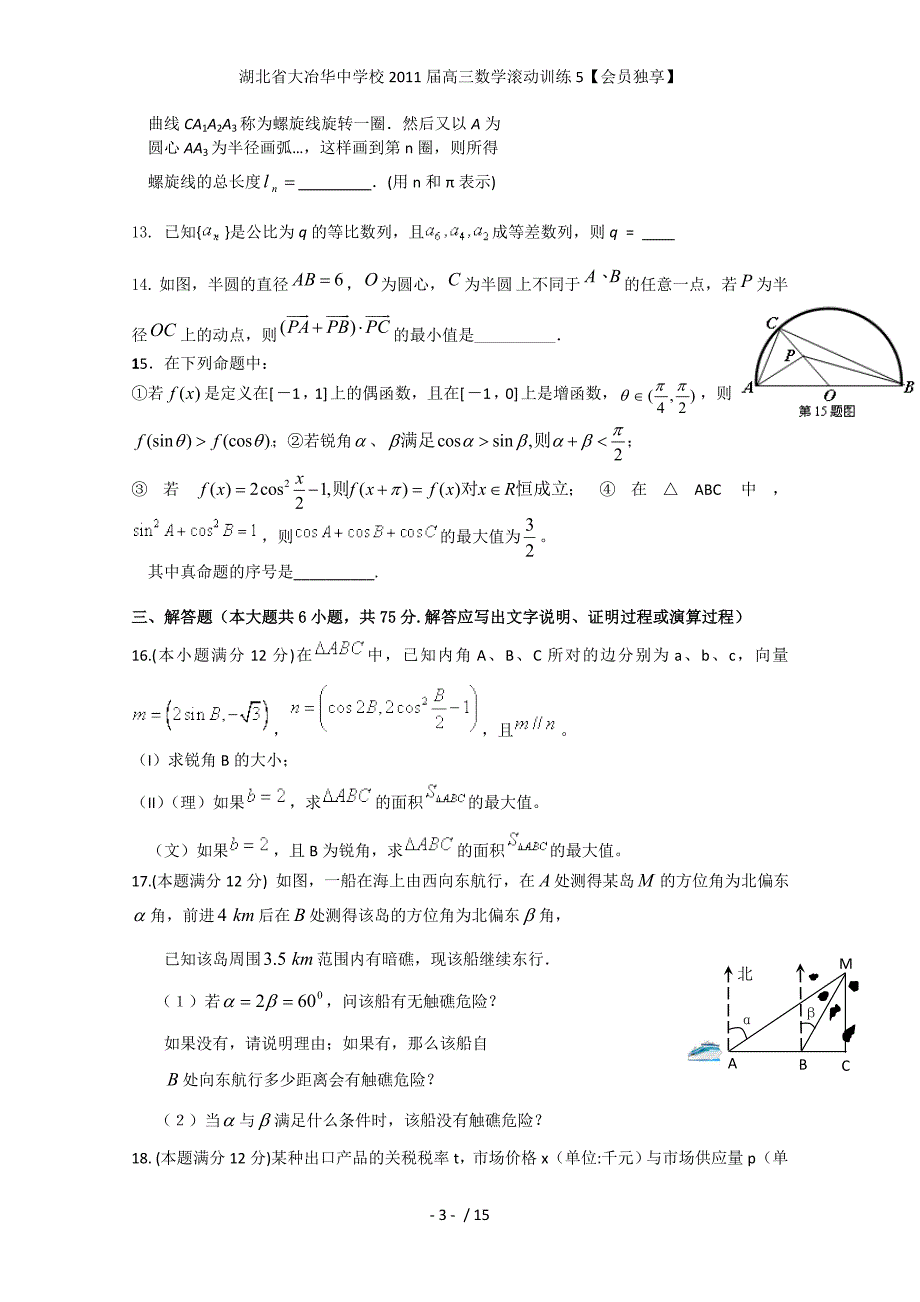 湖北省大冶华中学校 2011 届高三数学滚动训练 5【会员独享】
曲线 CA₁A₂A₃ 称为螺旋线旋转一圈．然后又以 A 为
圆心 AA₃ 为半径画弧…，这样画到第 n 圈，则所得
螺旋线的总长度 lₙ = __________．(用 n 和 π 表示)
13. 已知{aₙ}是公比为 q 的等比数列，且 a₆,a₄,a₂ 成等差数列，则 q = ____
14. 如图，半圆的直径 AB = 6，O 为圆心，C 为半圆上不同于 A、B 的任意一点，若 P 为半
径 OC 上的动点，则 (PA + PB)·PC 的最小值是__________．
15．在下列命题中：
①若 f(x) 是定义在[－1，1]上的偶函数，且在[－1，0]上是增函数，θ∈(π/4, π/2)，则
f(sinθ) > f(cosθ)；②若锐角 α、β满足cosα > sinβ,则α + β < π/2；
③ 若 f(x) = 2cos² x/2 −1,则f(x+π) = f(x)对x∈R恒成立；④ 在 △ ABC 中 ，
sin²A+cos²B=1，则cosA+cosB+cosC的最大值为 3/2。
其中真命题的序号是__________．
C
P
A
O
B
第15题图
三、解答题（本大题共 6 小题，共 75 分.解答应写出文字说明、证明过程或演算过程）
16.(本小题满分 12 分)在 ΔABC 中，已知内角 A、B、C 所对的边分别为 a、b、c，向量
m = (2sin B, −√3)，n = (cos 2B, 2cos² B/2 −1)，且 m // n。
（I）求锐角 B 的大小；
（II）（理）如果 b = 2，求 ΔABC 的面积 S△ABC 的最大值。
（文）如果 b = 2，且 B 为锐角，求 ΔABC 的面积 S△ABC 的最大值。
17.(本题满分 12 分) 如图，一船在海上由西向东航行，在 A 处测得某岛 M 的方位角为北偏东
α 角，前进 4 km 后在 B 处测得该岛的方位角为北偏东 β 角，
已知该岛周围 3.5 km 范围内有暗礁，现该船继续东行．
（1）若 α = 2β = 60⁰，问该船有无触礁危险？
如果没有，请说明理由；如果有，那么该船自
B 处向东航行多少距离会有触礁危险？
（2）当 α 与 β 满足什么条件时，该船没有触礁危险？
北
M
α
β
A
B
C
18. (本题满分 12 分)某种出口产品的关税税率 t，市场价格 x（单位:千元）与市场供应量 p（单
- 3 - / 15